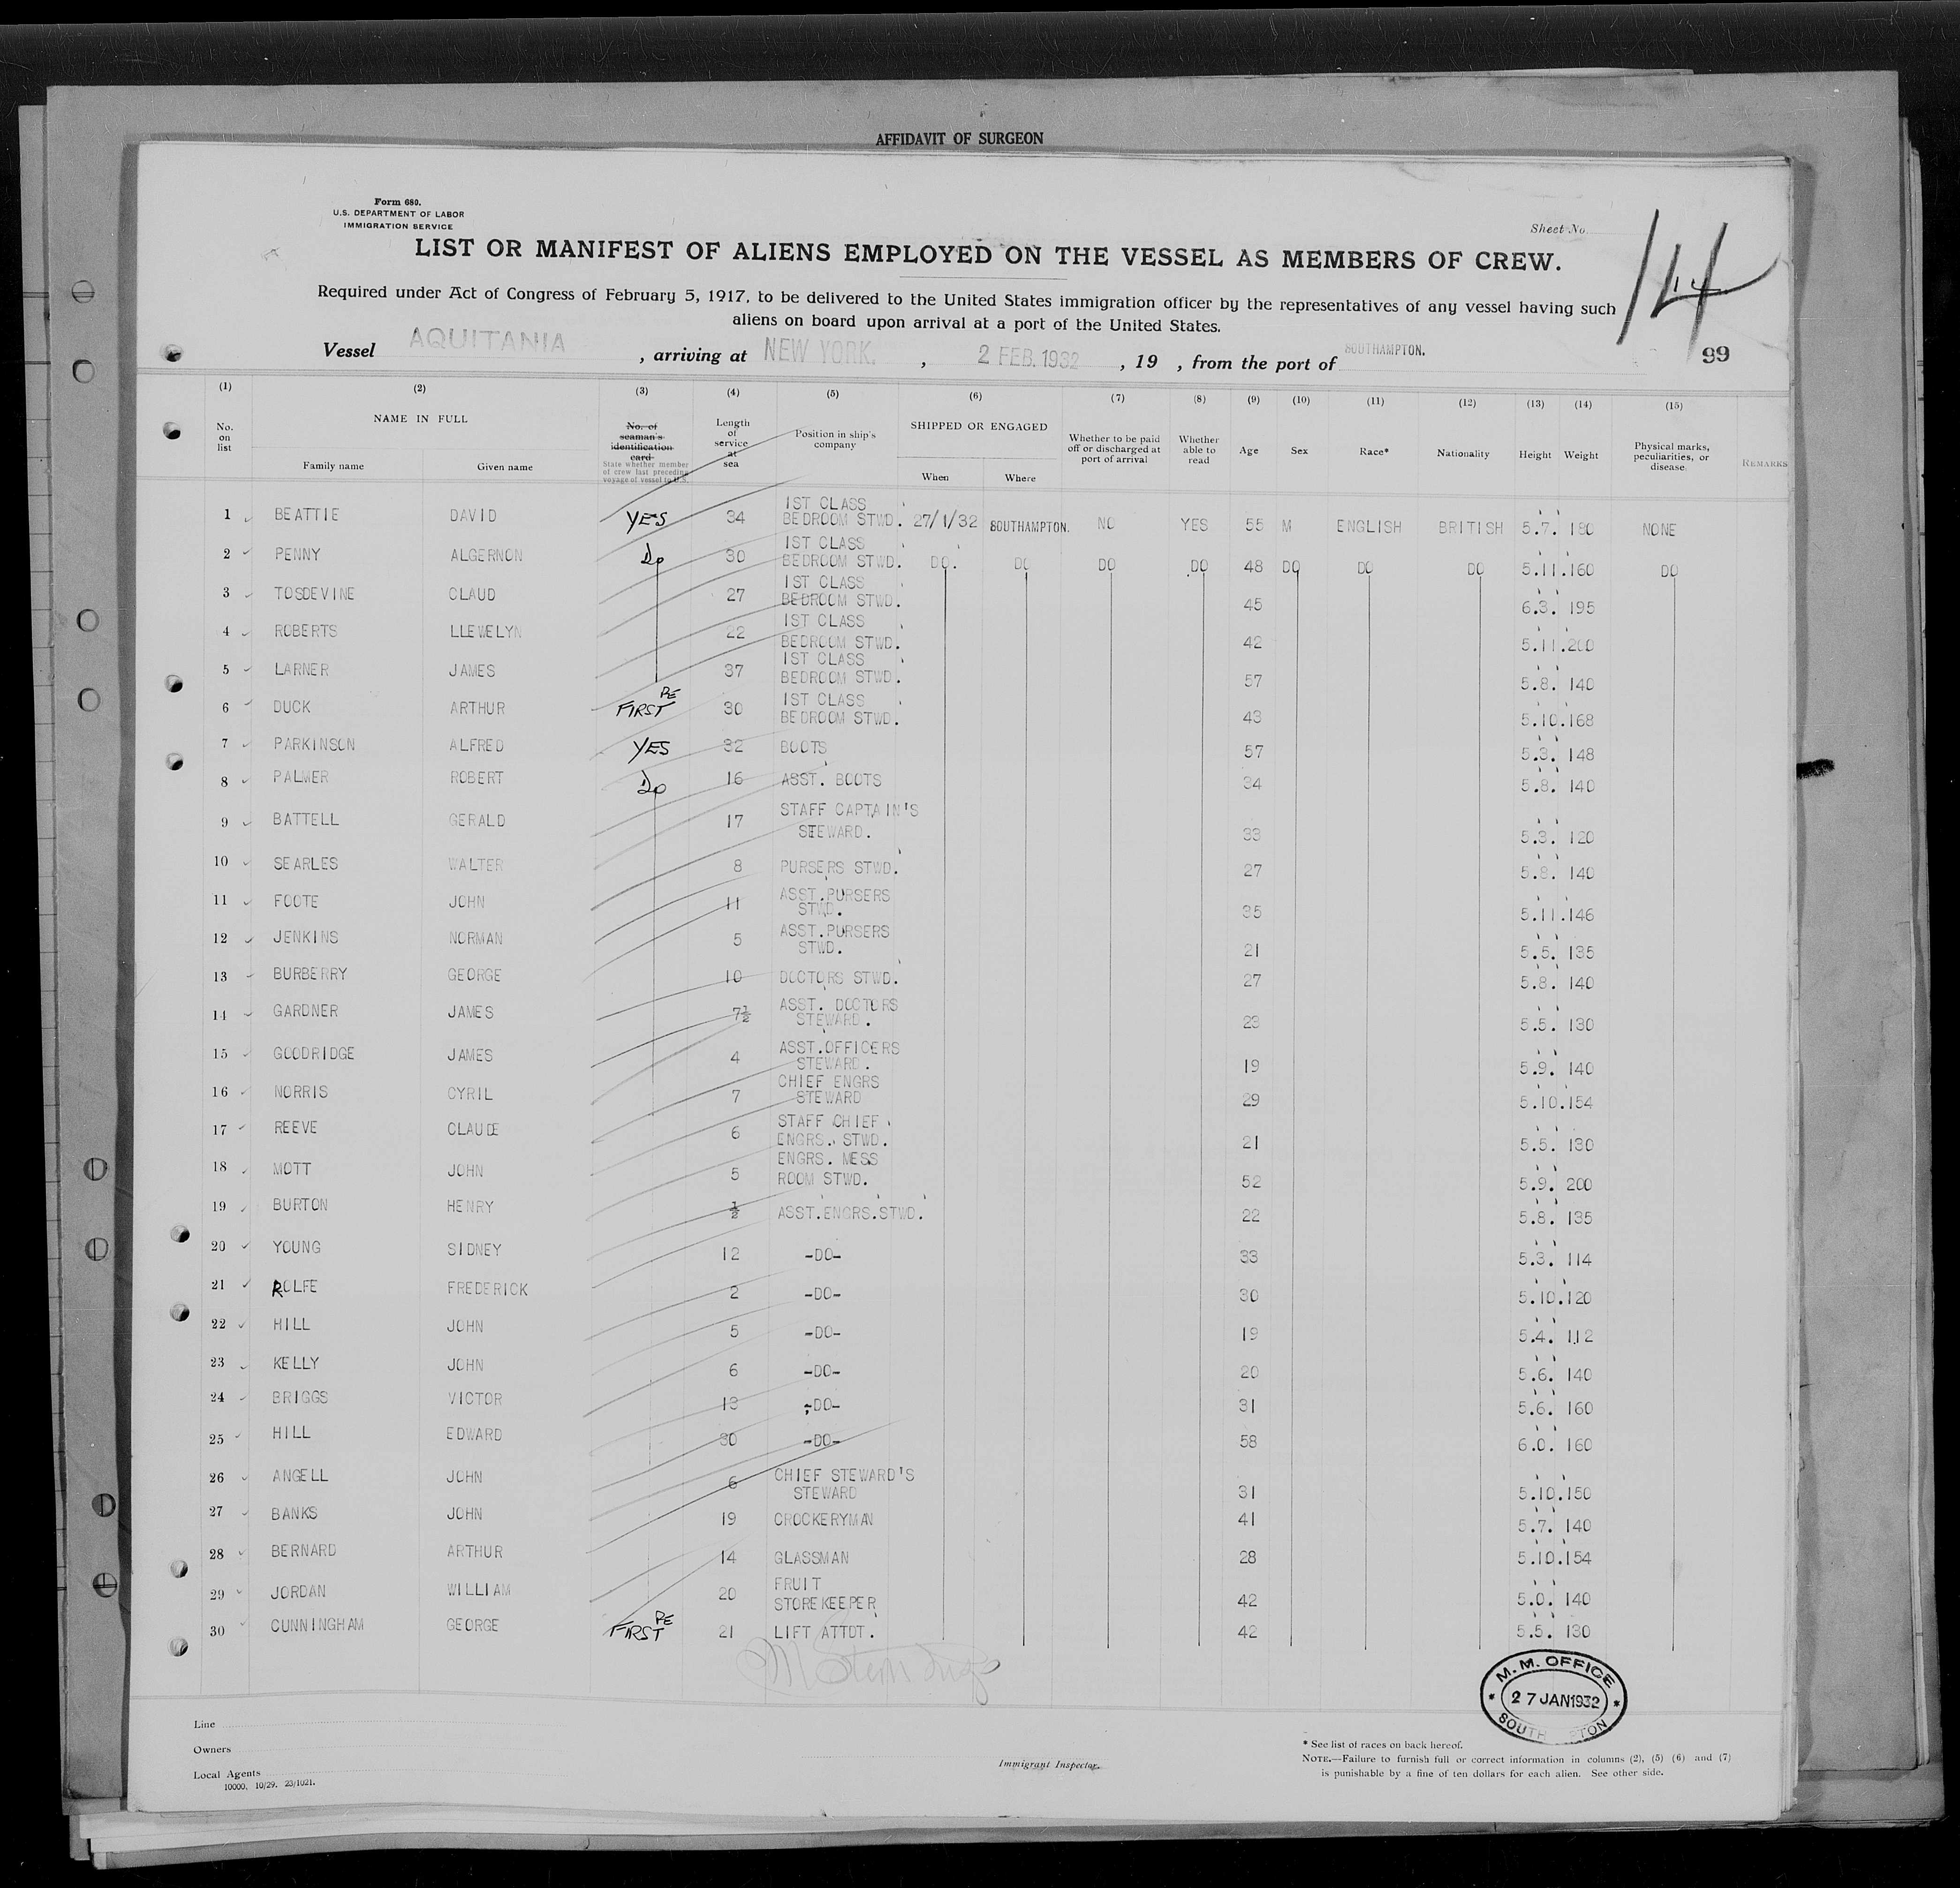 AFFIDAVIT OF SURGEON
Form 680.
U.S. DEPARTMENT OF LABOR
IMMIGRATION SERVICE
Sheet No.
14
LIST OR MANIFEST OF ALIENS EMPLOYED ON THE VESSEL AS MEMBERS OF CREW.
Required under Act of Congress of February 5, 1917, to be delivered to the United States immigration officer by the representatives of any vessel having such
aliens on board upon arrival at a port of the United States.
Vessel AQUITANIA , arriving at NEW YORK. , 2 FEB. 1932 , 19 , from the port of SOUTHAMPTON.
99
(1) (2) (3) (4) (5) (6) (7) (8) (9) (10) (11) (12) (13) (14) (15)
No. on list
NAME IN FULL
Family name Given name
No. of seaman's identification card
State whether member of crew last preceding voyage of vessel to U.S.
Length of service at sea
Position in ship's company
SHIPPED OR ENGAGED
When Where
Whether to be paid off or discharged at port of arrival
Whether able to read
Age Sex Race* Nationality Height Weight
Physical marks, peculiarities, or disease.
REMARKS
1 BEATTIE DAVID YES 34 1ST CLASS BEDROOM STWD. 27/1/32 SOUTHAMPTON. NO YES 55 M ENGLISH BRITISH 5.7. 180 NONE
2 PENNY ALGERNON Do 30 1ST CLASS BEDROOM STWD. DO. DO DO DO 48 DO DO DO 5.11. 160 DO
3 TOSDEVINE CLAUD 27 1ST CLASS BEDROOM STWD. 45 6.3. 195
4 ROBERTS LLEWELYN 22 1ST CLASS BEDROOM STWD. 42 5.11. 200
5 LARNER JAMES 37 1ST CLASS BEDROOM STWD. 57 5.8. 140
6 DUCK ARTHUR FIRST RE 30 1ST CLASS BEDROOM STWD. 43 5.10. 168
7 PARKINSON ALFRED YES 32 BOOTS 57 5.3. 148
8 PALMER ROBERT Do 16 ASST. BOOTS 34 5.8. 140
9 BATTELL GERALD 17 STAFF CAPTAIN'S STEWARD. 33 5.3. 120
10 SEARLES WALTER 8 PURSERS STWD. 27 5.8. 140
11 FOOTE JOHN 11 ASST.PURSERS STWD. 35 5.11. 146
12 JENKINS NORMAN 5 ASST.PURSERS STWD. 21 5.5. 135
13 BURBERRY GEORGE 10 DOCTORS STWD. 27 5.8. 140
14 GARDNER JAMES 7½ ASST. DOCTORS STEWARD. 23 5.5. 130
15 GOODRIDGE JAMES 4 ASST.OFFICERS STEWARD. 19 5.9. 140
16 NORRIS CYRIL 7 CHIEF ENGRS STEWARD 29 5.10. 154
17 REEVE CLAUDE 6 STAFF CHIEF ENGRS. STWD. 21 5.5. 130
18 MOTT JOHN 5 ENGRS. MESS ROOM STWD. 52 5.9. 200
19 BURTON HENRY ½ ASST.ENGRS.STWD. 22 5.8. 135
20 YOUNG SIDNEY 12 -DO- 33 5.3. 114
21 ROLFE FREDERICK 2 -DO- 30 5.10. 120
22 HILL JOHN 5 -DO- 19 5.4. 112
23 KELLY JOHN 6 -DO- 20 5.6. 140
24 BRIGGS VICTOR 13 -DO- 31 5.6. 160
25 HILL EDWARD 30 -DO- 58 6.0. 160
26 ANGELL JOHN 6 CHIEF STEWARD'S STEWARD 31 5.10. 150
27 BANKS JOHN 19 CROCKERYMAN 41 5.7. 140
28 BERNARD ARTHUR 14 GLASSMAN 28 5.10. 154
29 JORDAN WILLIAM 20 FRUIT STOREKEEPER 42 5.0. 140
30 CUNNINGHAM GEORGE FIRST RE 21 LIFT ATTDT. 42 5.5. 130
M.M. OFFICE
27 JAN 1932
Line
Owners
Local Agents
10000. 10/29. 23/1021.
Immigrant Inspector.
* See list of races on back hereof.
NOTE.—Failure to furnish full or correct information in columns (2), (5) (6) and (7)
is punishable by a fine of ten dollars for each alien. See other side.